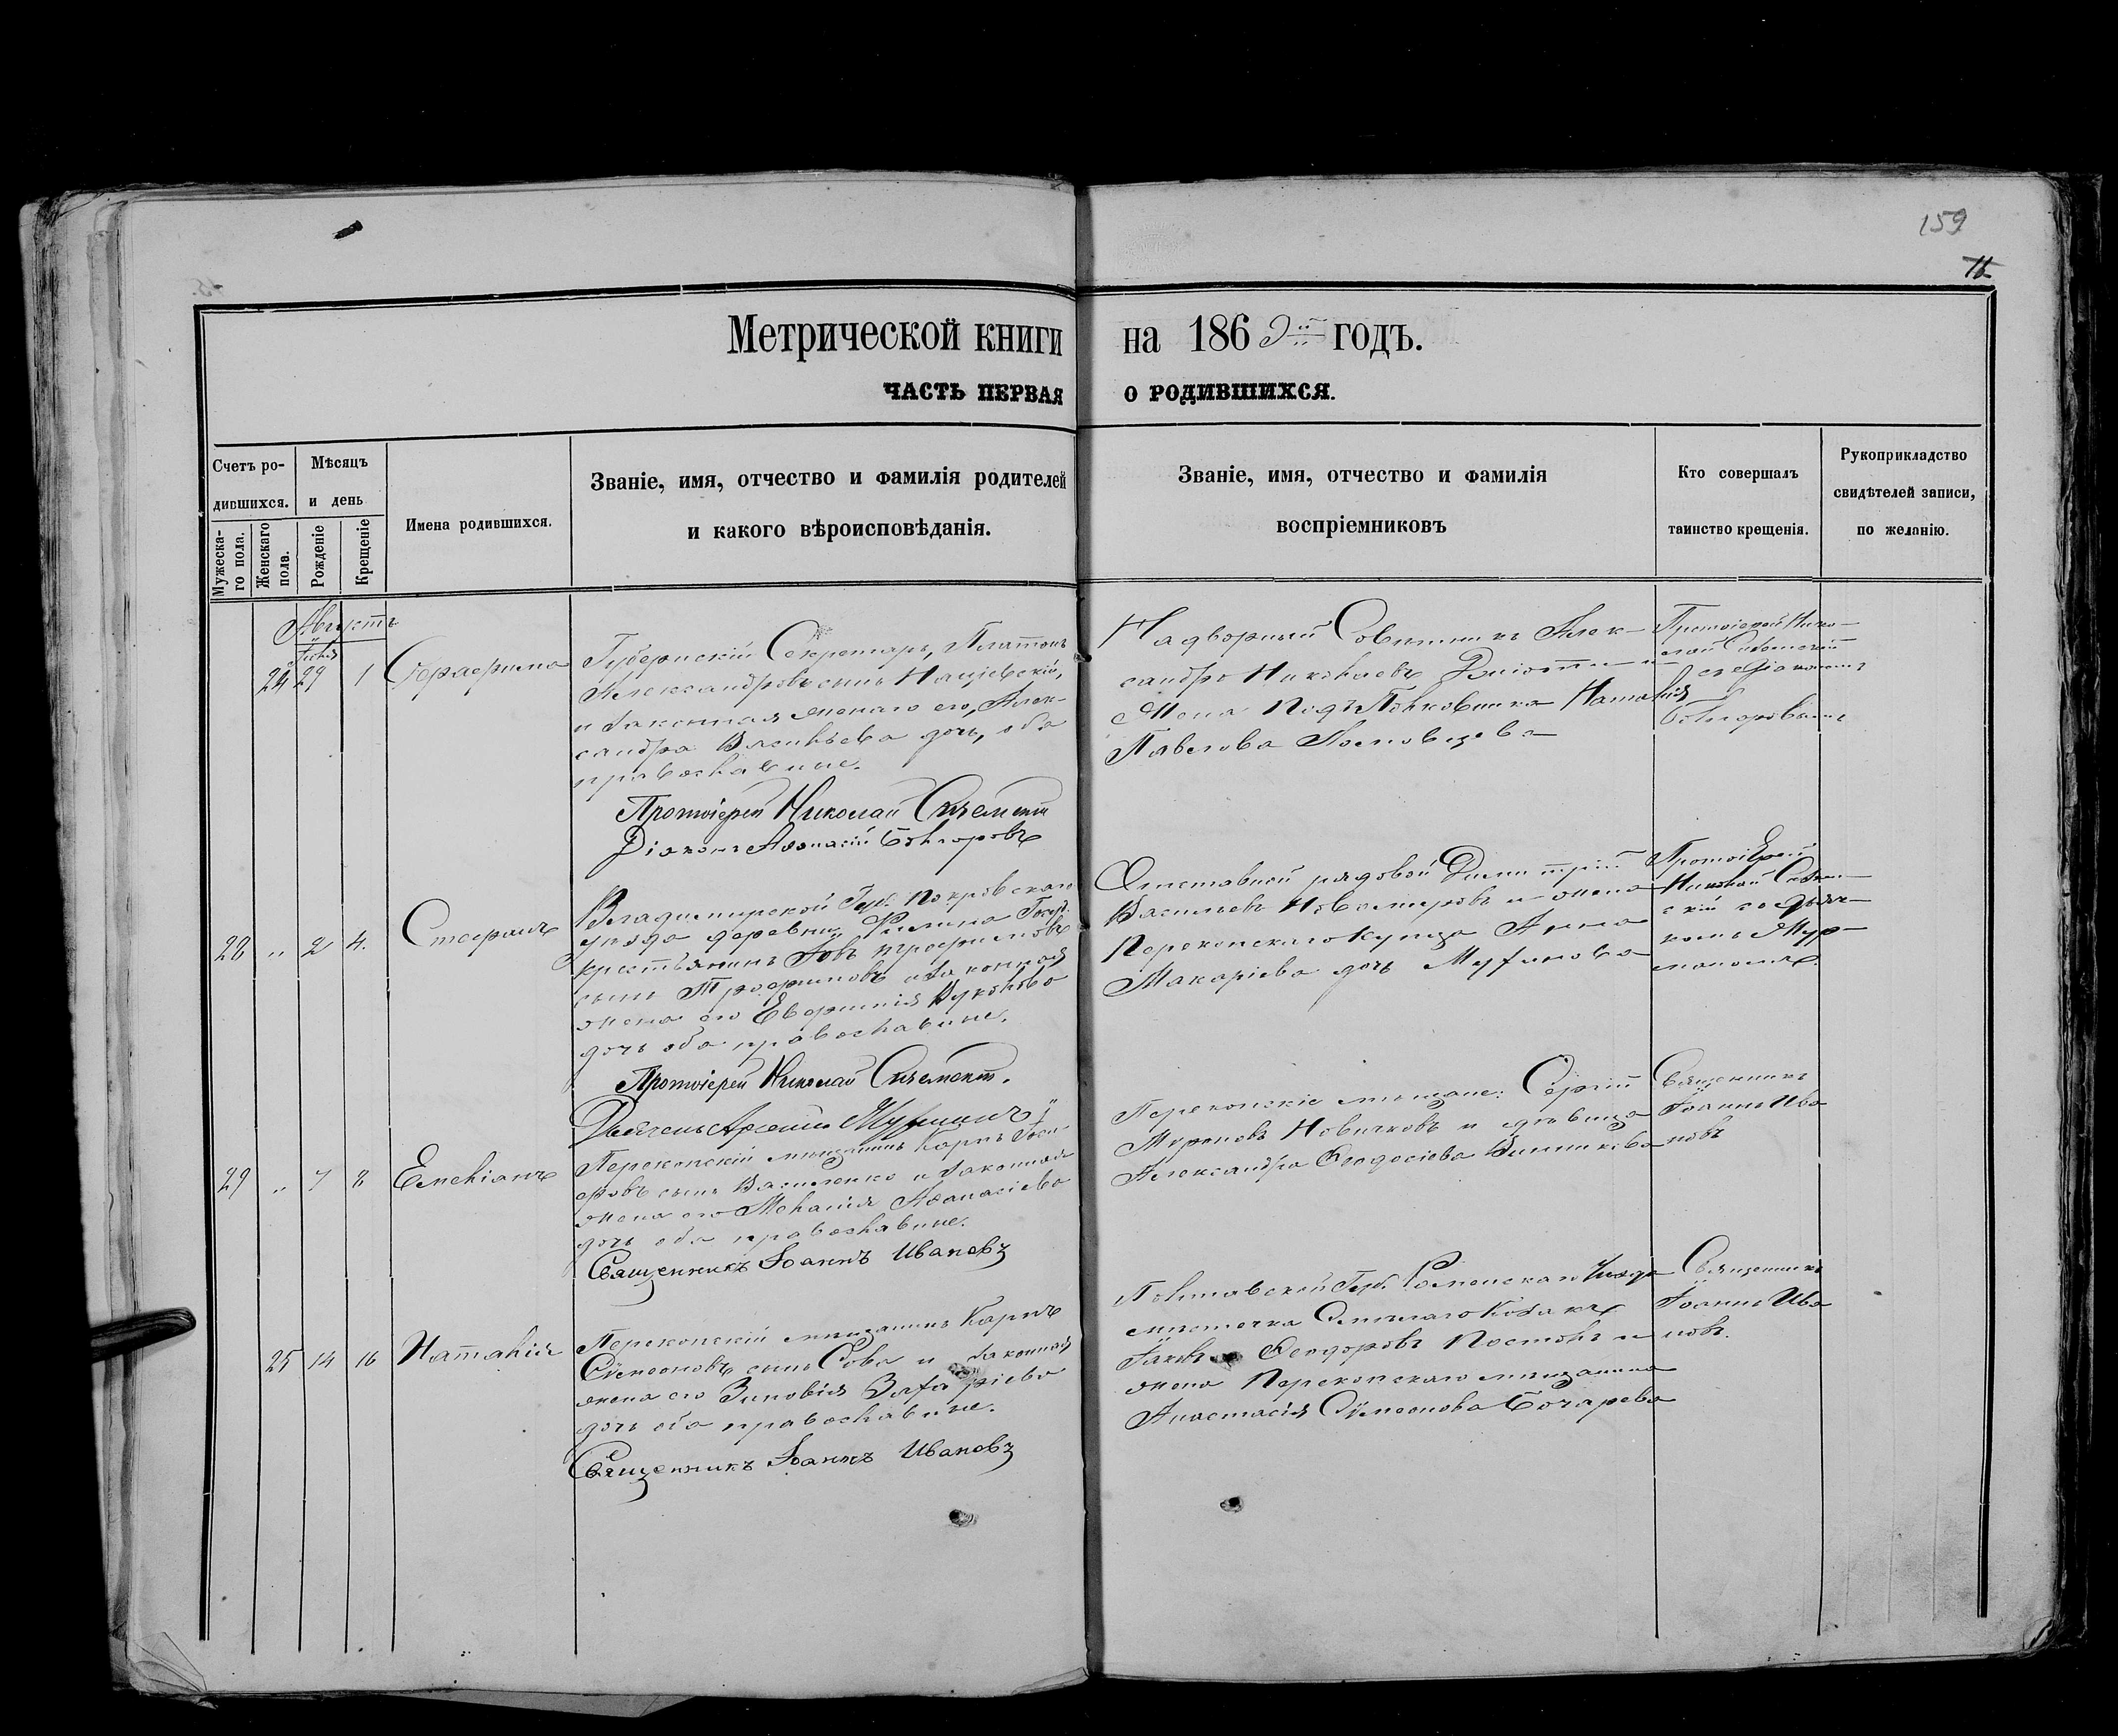 159
Метрической книги на 1869й годъ.
ЧАСТЬ ПЕРВАЯ О РОДИВШИХСЯ.
Счетъ ро-
дившихся.
Мужеска-
го пола.
Женскаго
пола.
Мѣсяцъ
и день
Рожденіе
Крещеніе
Имена родившихся.
Званіе, имя, отчество и фамилія родителей
и какого вѣроисповѣданія.
Званіе, имя, отчество и фамилія
воспріемниковъ
Кто совершалъ
таинство крещенія.
Рукоприкладство
свидѣтелей записи,
по желанію.
Августъ
Іюля
24 29 1 Серафима
Губернскій Секретарь, Платонъ
Александровъ сынъ
и законная жена его, Алек-
сандра Васильева дочь, оба
православные.
Протоіерей Николай
Діаконъ Аѳанасій Болгоровъ
Надворный Совѣтникъ Алек-
сандръ Николаевъ и
жена Подполковника Наталія
Павлова
Протоіерей Нико-
лай
съ Діакономъ
Болгоровымъ
28 " 2 4. Стефанъ
Владимирской Губ. Покровскаго
уѣзда деревни Госуд.
крестьянинъ Іовъ Трофимовъ
сынъ Трофимовъ и законная
жена его Евфимія
дочь оба православные.
Протоіерей Николай
Арсеній
Отставной рядовой Димитрій
Васильевъ и жена
Перекопскаго купца Анна
Макаріева дочь
Протоіерей
Николай
скій съ Дьяч-
комъ
29 " 7 8 Емеліанъ
Перекопскій мѣщанинъ Карпъ Іоси-
фовъ сынъ Василенко и законная
жена его Меланія Аѳанасіева
дочь оба православные.
Священникъ Іоаннъ Ивановъ
Перекопскіе мѣщане: Сергій
Мироновъ Новичковъ и дѣвица
Александра Ѳеодосіева Винникова
Священникъ
Іоаннъ Ива
новъ
25 14 16 Наталія
Перекопскій мѣщанинъ Карпъ
Сѵмеоновъ сынъ Сова и законная
жена его Зиновія Захаріева
дочь оба православные.
Священникъ Іоаннъ Ивановъ
Полтавской Губ. Роменскаго уѣзда
мѣстечка Смѣлаго Козакъ
Іаковъ Ѳеодоровъ Постолъ и
жена Перекопскаго мѣщанина
Анастасія Сѵмеонова Бочарева
Священникъ
Іоаннъ Ива
новъ.